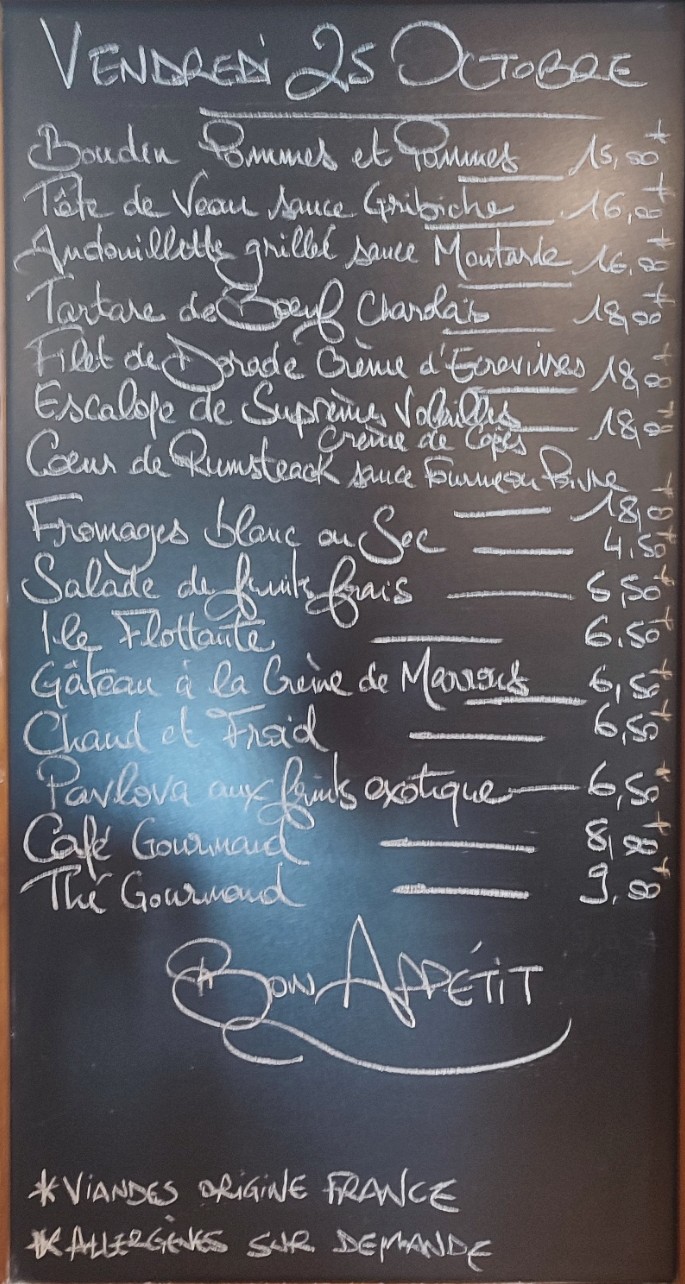 VENDREDI 25 OCTOBRE
Boudin Pommes et Pommes 15,00€
Tête de Veau sauce Gribiche 16,00€
Andouillette grillé sauce Moutarde 16,00€
Tartare de Boeuf Charolais 18,00€
Filet de Dorade Crème d'Ecrevisses 18,00€
Escalope de Suprème Volailles 18,00€
Crème de Cèpes
Coeur de Rumsteack sauce Poivre
18,00€
Fromages blanc ou Sec 4.50€
Salade de fruits frais 5,50€
Ile Flottante 6.50€
Gâteau à la Crème de Marrons 6,50€
Chaud et Froid 6,50€
Pavlova aux fruits exotique 6,50€
Café Gourmand 8,00€
Thé Gourmand 9,00€
BON APPÉTIT
*VIANDES ORIGINE FRANCE
*ALLERGÈNES SUR DEMANDE